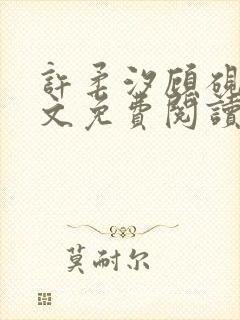 許柔汐顧硯
文免費閱讀
莫耐尔